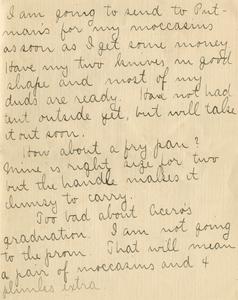 I am going to send to Put-
mans for my moccasins
as soon as I get some money.
Have my two knives, in good
shape and most of my
duds are ready. Have not had
tent outside yet, but will take
it out soon.
How about a fry pan?
Mine is right size for two
but the handle makes it
clumsy to carry.
Too bad about Cicero's
graduation. I am not going
to the prom. That will mean
a pair of moccasins and 4
plunks extra.